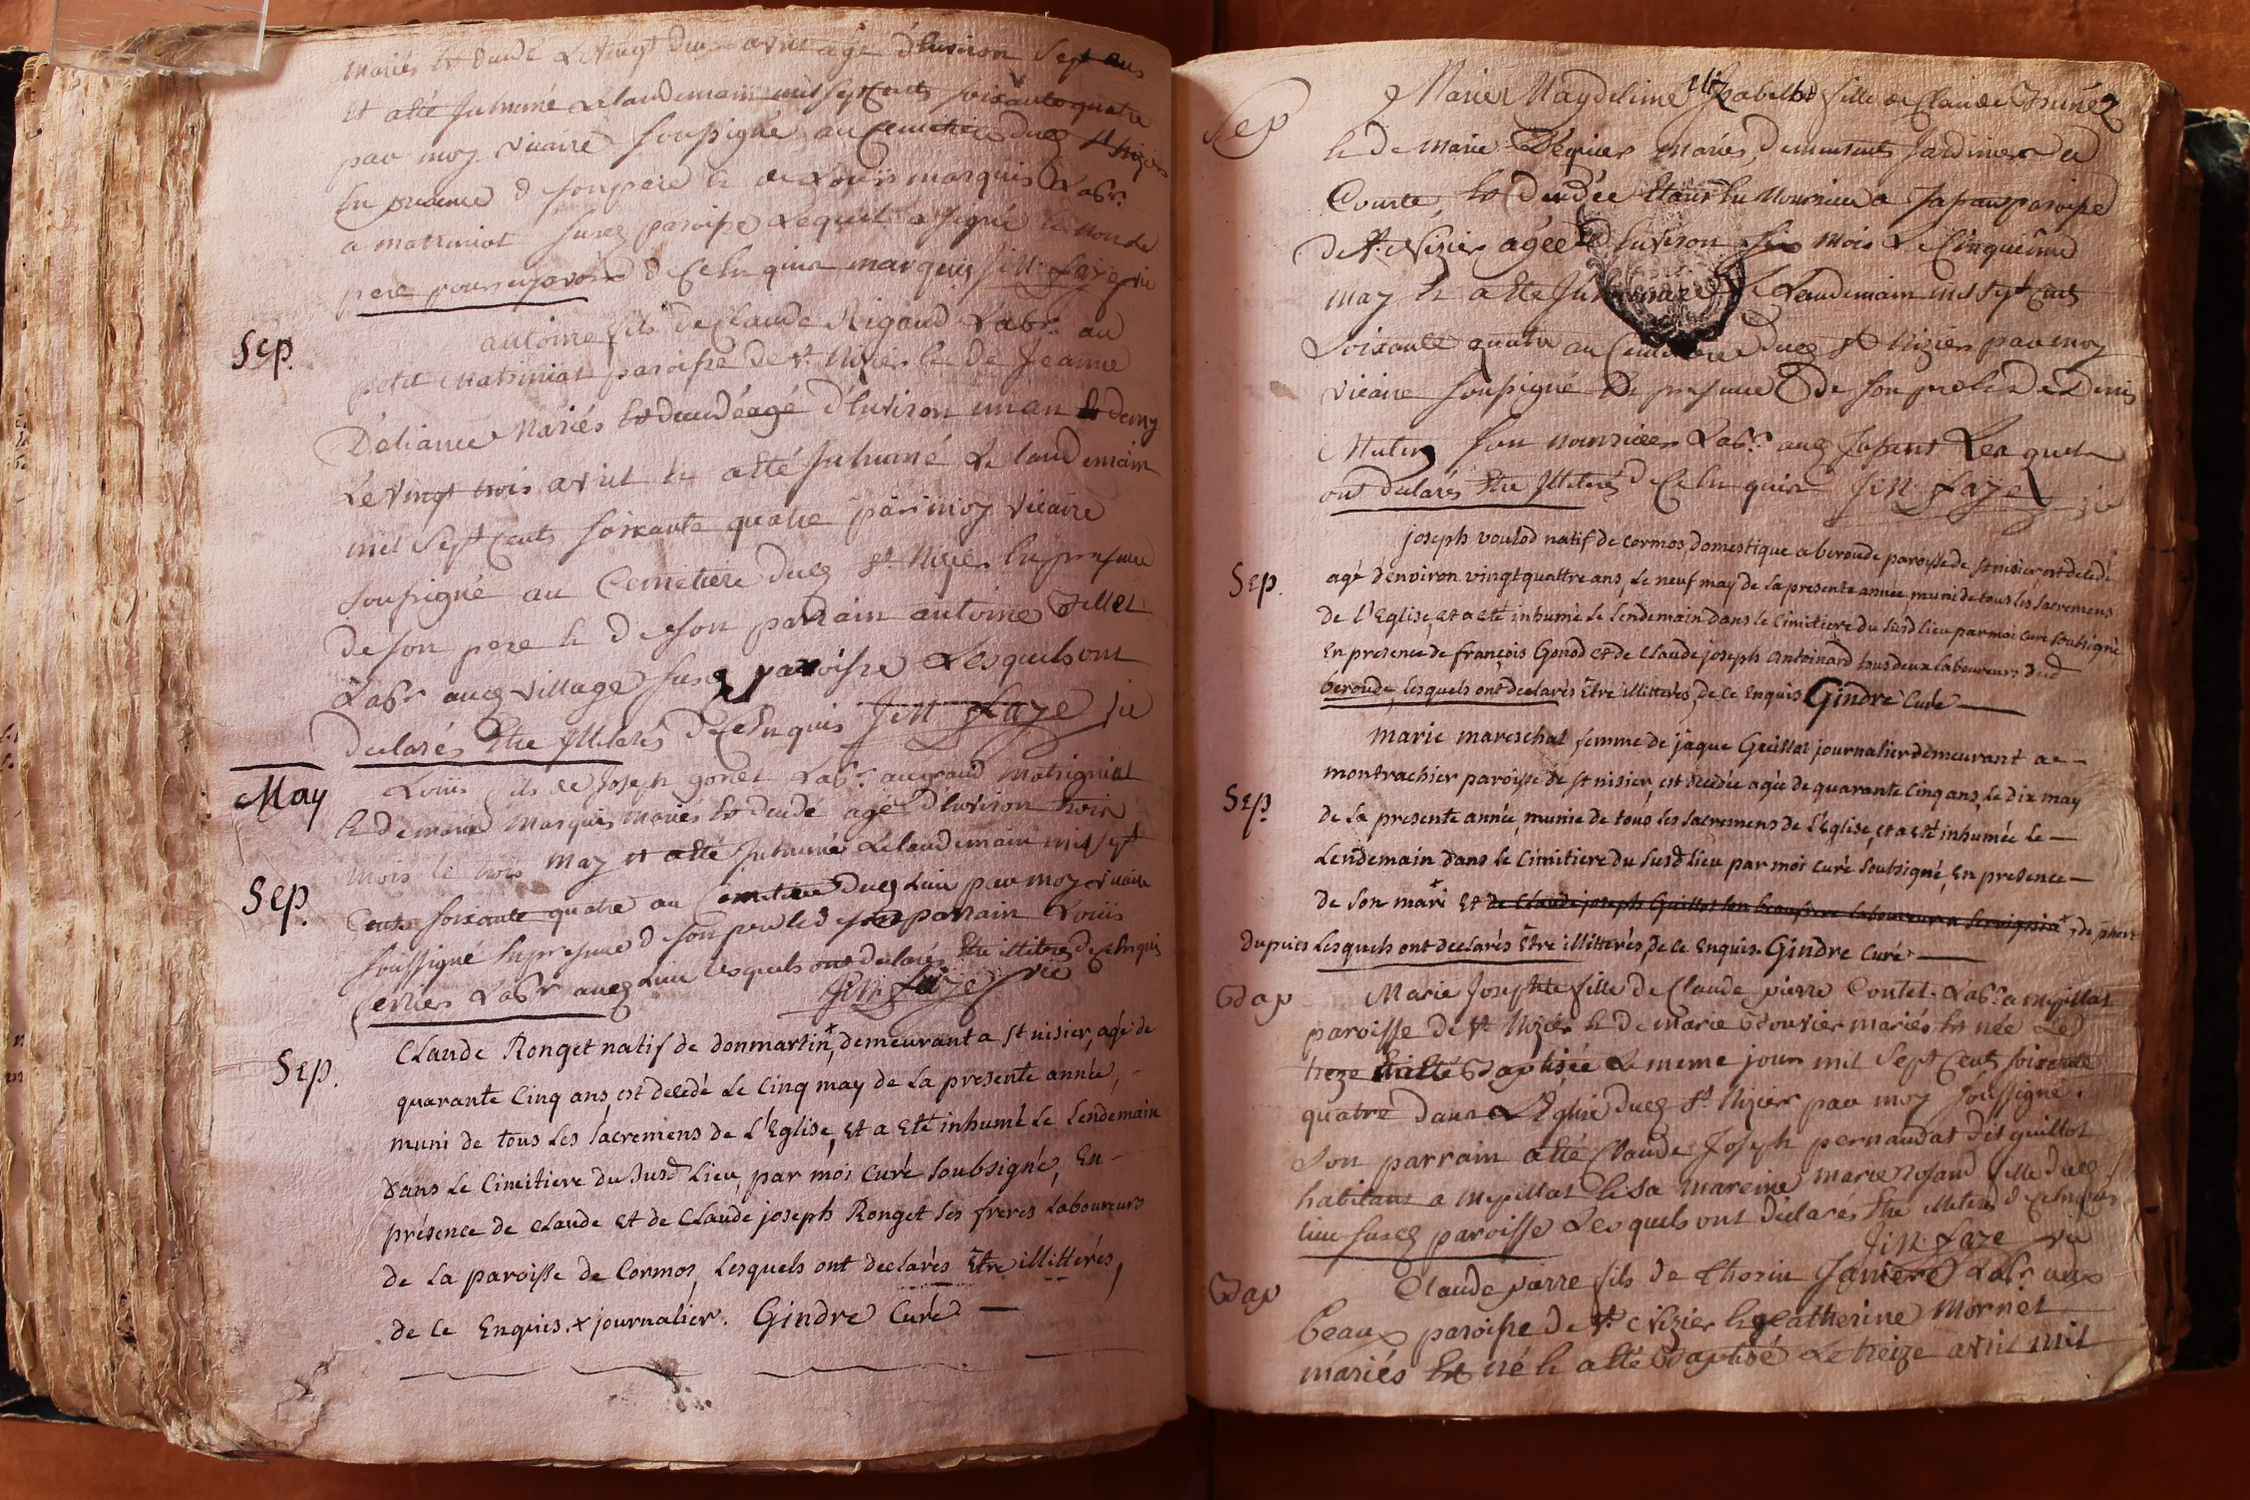 mariés est decedé Le vingt deux avril agé d'environ sept ans
et a été Inhumé Le landemain mil sept Cents soixante quatre
par moy vicaire soussigné au Cemetiere dud st Nizier
En presence de son pere & de Louis marquis Labr.
a matriniat susd paroisse Lequel a signé & non le
pere pour ne savoir de Ce Enquis marquis J: M: Faye vic
Sep.
antoine fils de Claude Rigaud Labr. au
petit Matriniat paroisse de st. Nizier & de Jeanne
mariés est decedé agé d'Environ un an & demy
Le vingt trois avril & a été Inhumé Le landemain
mil sept Cents soixante quatre par moy vicaire
soussigné au Cemetiere dud st. Nizier En presence
de son pere & de son parrain antoine
Labr. aud village susd paroisse Lesquels ont
declarés Etre Illiterés de Ce Enquis J: M: Faye vic
May
Louis fils de Joseph gonet Labr. au grand Matrignat
& de marie marquis mariés est decedé agé d'Environ trois
mois le trois may et a été Inhumé Le landemain mil sept
Sep.
Cents soixante quatre au Cemetiere dud Lieu par moy vicaire
soussigné En presence de son pere & de son parrain Louis
Labr. aud Lieu Lesquels ont declarés Etre illiterés de ce Enquis
J: M: Faye vic
Sep.
Claude Ronget natif de donmartin,* demeurant a st nisier, agé de
quarante cinq ans est decedé Le cinq may de La presente année,
muni de tous Les sacremens de L'Eglise, et a eté inhumé Le Lendemain
dans Le cimitiere du susd Lieu, par moi curé soubsigné, En
présence de claude et de Claude joseph Ronget ses freres Laboureurs
de La paroisse de Cormos, Lesquels ont declarés Etre illitterés,
de ce Enquis. * journalier. Gindre Curé
Sep
Marie Magdeleine Elizabeth fille de Claude
& de marie mariés, demeurants Jardiniers a
est decedée Etant En Nourrice a Jafans paroisse
de st. Nizier agée d'Environ six mois Le Cinquieme
may & a été Inhumée Le Landemain mil sept Cents
soixante quatre au Cemetiere dud st Nizier par moy
vicaire soussigné En presence de son pere & de Denis
Mutin son nourricier Labr. aud Jafans Lesquels
ont declarés Etre Illiterés de Ce Enquis J: M: Faye vic
Sep.
joseph voulod natif de cormos, domestique a beroude paroisse de st nisier est decedé
agé d'environ vingt quattre ans, Le neuf may de La presente année, muni de tous Les sacremens
de L'Eglise, et a eté inhumé Le Lendemain dans Le Cimitiere du susd Lieu par moi curé soubsigné
En presence de françois Gonod et de claude joseph antoinard tous deux Laboureurs dud
beroude, Lesquels ont declarés Etre illitterés, de ce Enquis Gindre Curé
Sep.
Marie mareschal femme de jaque Guillot journalier demeurant a
montrachier paroisse de st nisier, est decedée agée de quarante cinq ans, Le dix may
de La presente année, munie de tous Les sacremens de L'Eglise, et a eté inhumée Le
Lendemain dans Le cimitiere du susd Lieu par moi curé soubsigné, En presence
de son mari* et de Claude joseph Guillot son beaufrere Laboureur a
dupuies Lesquels ont declarés Etre illitterés, de ce Enquis. Gindre Curé
Bap
Marie Josephte fille de Claude pierre Contet Labr. a mepillat
paroisse de st. Nizier & de marie Bouvier mariés est née Le
treze baptisée Le meme jour mil sept Cents soixante
quatre dans L'Eglise dud st Nizier par moy soussigné.
son parrain a été Claude Joseph pernaudat dit guillot
habitant a mepillat & sa mareine marie fille dud
lieu susd paroisse Lesquels ont declarés Etre illiterés de Ce Enquis
J: M: Faye vic
Bap
Claude pierre fils de Thorin Janiere Labr. aux
beaux paroisse de st. Nizier & Catherine Mornet
mariés Est né & a été Baptisé Le treize avril mil